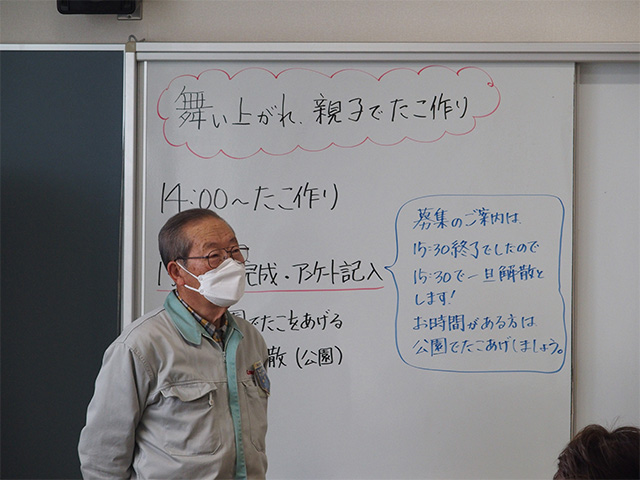 舞い上がれ、親子でたこ作り
14:00～たこ作り
完成・アンケート記入
でたこをあげる
散(公園)
募集のご案内は
15:30終了でしたので
15:30で一旦解散と
します!
お時間がある方は
公園でたこあげしましょう。